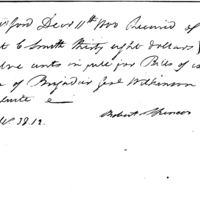 ford Decr 11th 1800 Received of
t C Smith thirty eight dollars
cents in full for Bills of
of Brigadier Genl Wilkinson
suite
Robert Spencer
38.12.